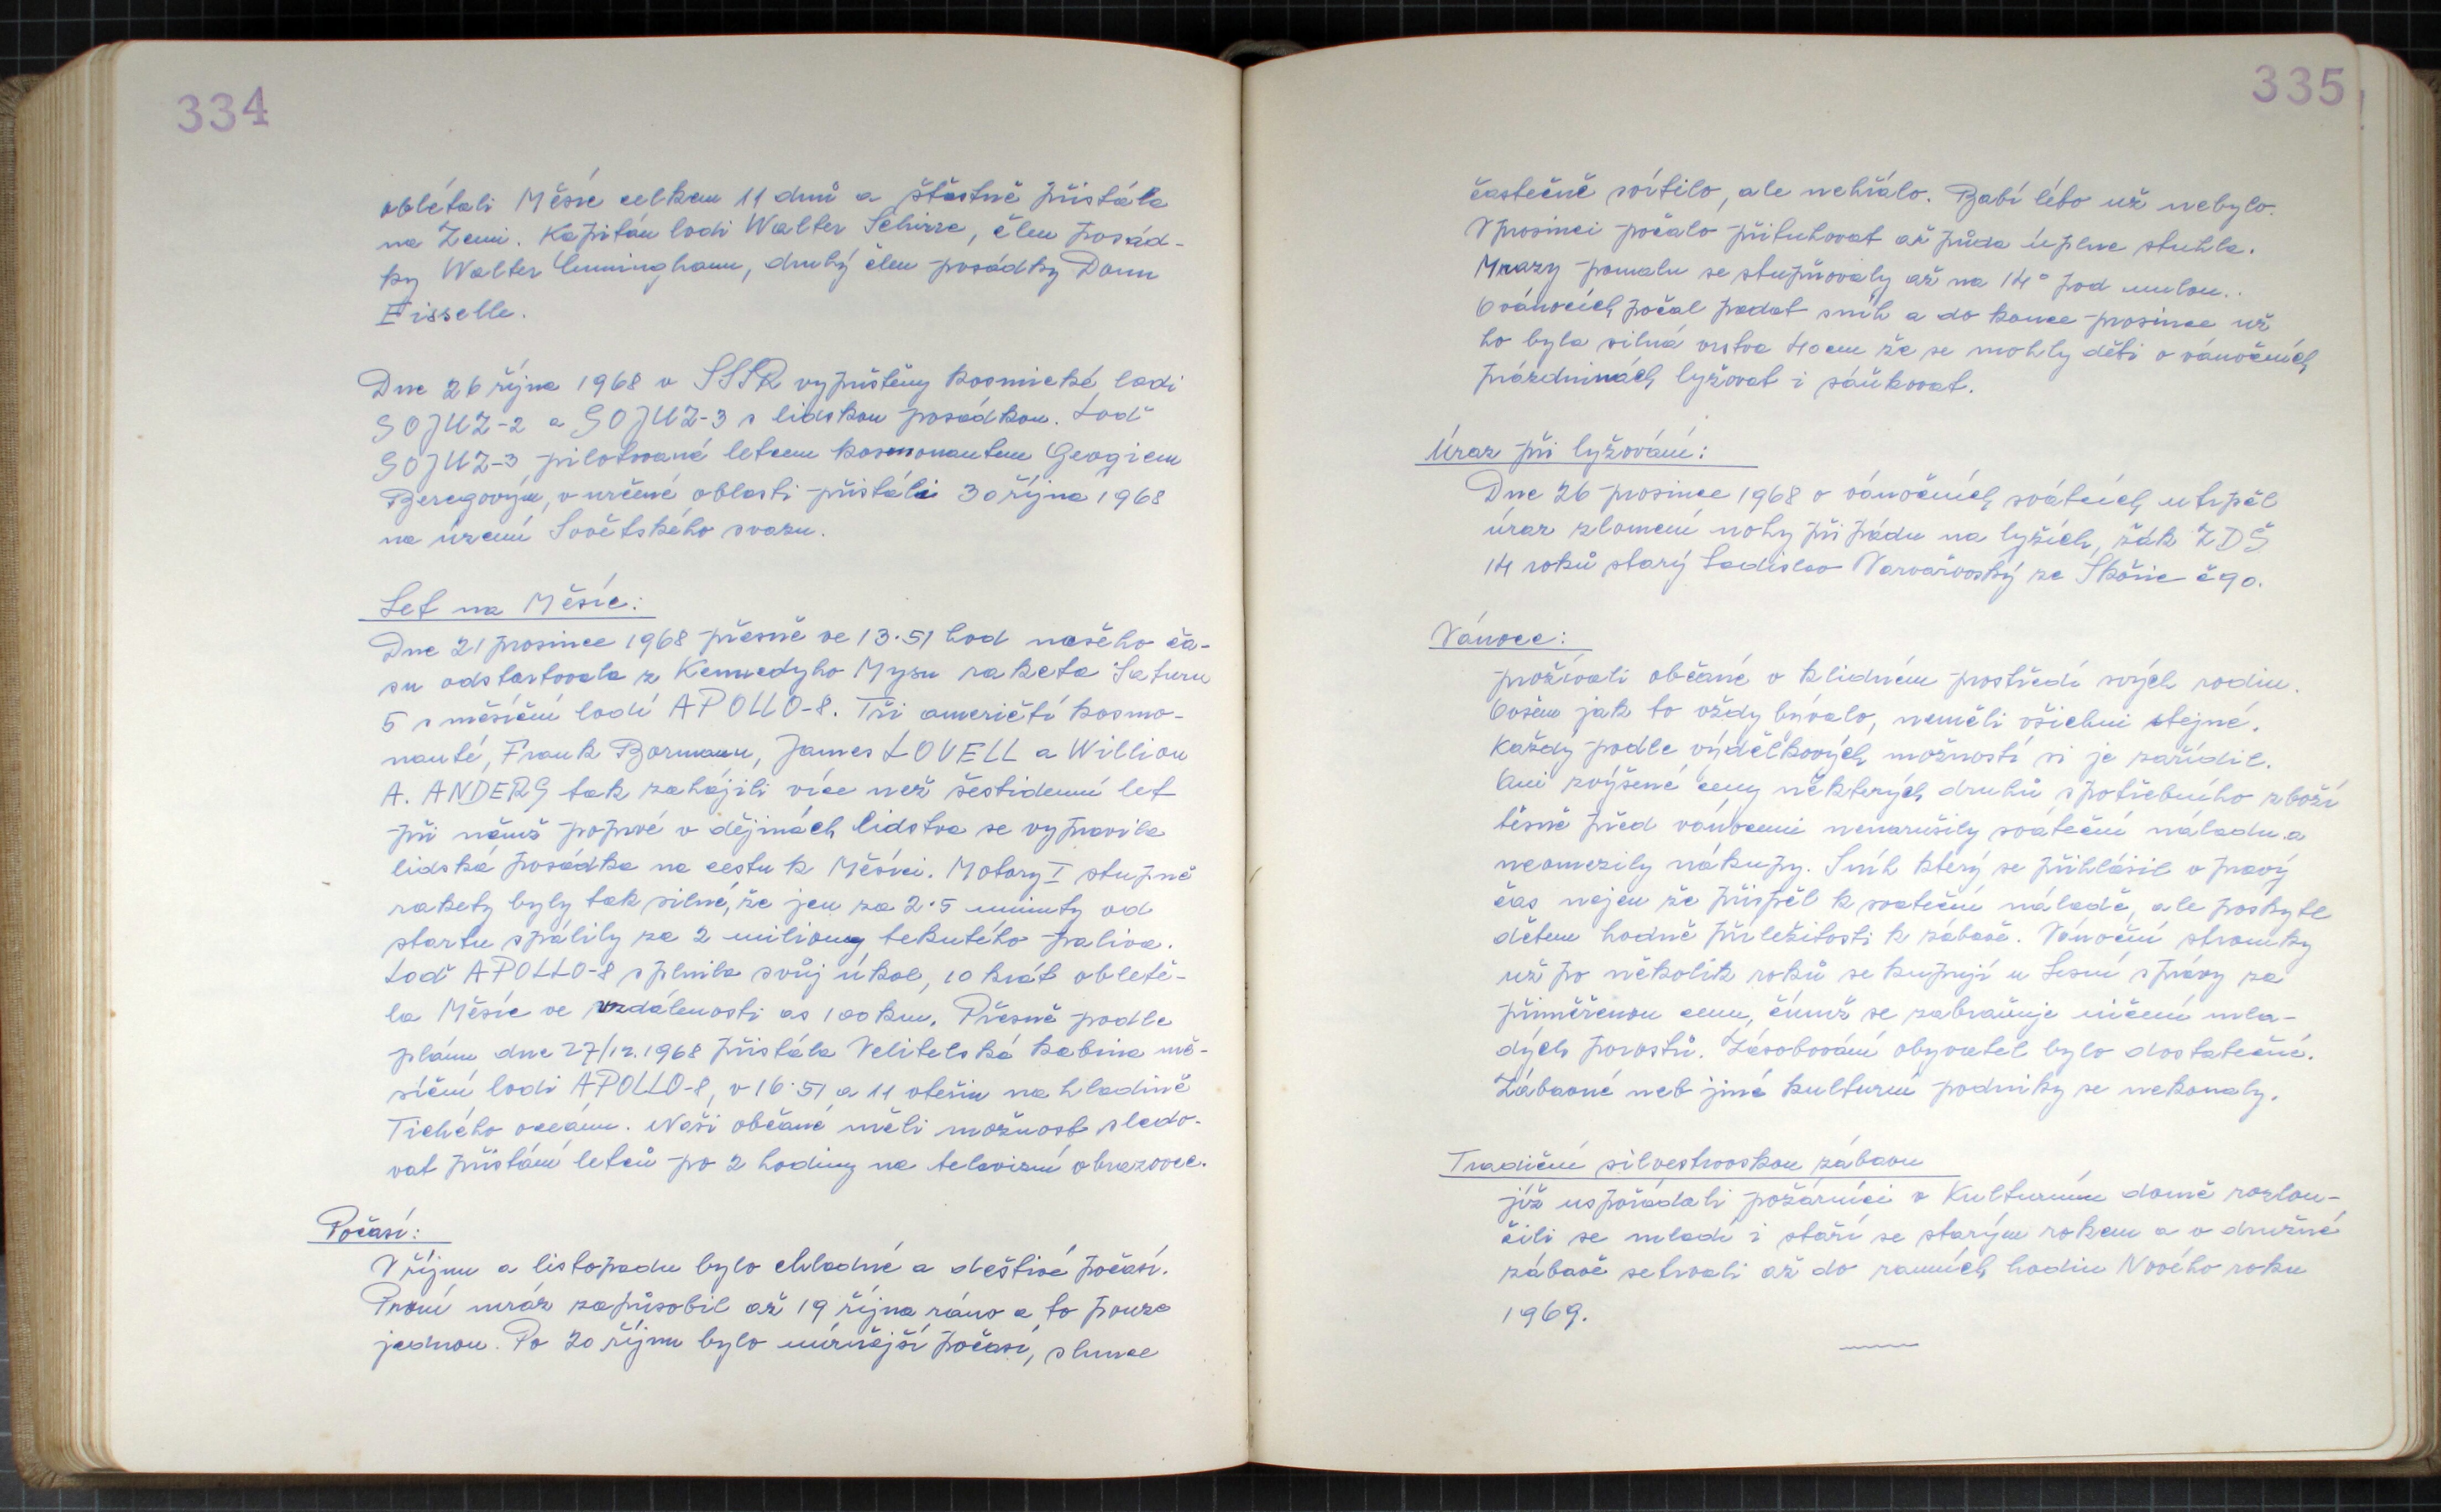 334
oblétali Měsíc celkem 11 dnů a šťastně přistála
na Zemi. Kapitán lodi Walter Schirra, člen posád-
ky Walter Cunningham, druhý člen posádky Donn
Eisselle.
Dne 26 října 1968 v SSSR vypuštěny kosmické lodi
SOJUZ-2 a SOJUZ-3 s lidskou posádkou. Loď
SOJUZ-3 pilotované letcem kosmonautem Geogiem
Beregovým, v určené oblasti přistáli 30 října 1968
na území Sovětského svazu.
Let na Měsíc:
Dne 21 prosince 1968 přesně ve 13.51 hod našeho ča-
su odstartovala z Kennedyho Mysu raketa Saturn
5 s měsíční lodí APOLLO-8. Tři američtí kosmo-
nauté, Frank Bormann, James LOVELL a Willion
A. ANDERS tak zahájili více než šestidenní let
při němž poprvé v dějinách lidstva se vypravila
lidská posádka na cestu k Měsíci. Motory I stupně
rakety byly tak silné, že jen za 2.5 minuty od
startu spálily za 2 miliony tekutého paliva.
Loď APOLLO-8 splnila svůj úkol, 10 krát obletě-
la Měsíc ve vzdálenosti as 100 km. Přesně podle
plánu dne 27/12.1968 přistála Velitelská kabina mě-
síční lodi APOLLO-8, v 16.51 a 11 vteřin na hladině
Tichého oceánu. Naši občané měli možnost sledo-
vat přistání letců po 2 hodiny na televizní obrazovce.
Počasí:
V říjnu a listopadu bylo chladné a deštivé počasí.
První mráz zapůsobil až 19 října ráno a to pouze
jednou. Po 20 říjnu bylo mírnější počasí, slunce
335
částečně svítilo, ale nehřálo. Babí léto už nebylo.
V prosinci počalo přituhovat až půda úplne stuhla.
Mrazy pomalu se stupňovaly až na 14° pod nulou.
O vánocích počal padat sníh a do konce prosince už
ho byla silná vrstva 40 cm že se mohly děti o vánočních
prázdninách lyžovat i sáňkovat.
Úraz při lyžování:
Dne 26 prosince 1968 o vánočních svátcích utrpěl
úraz zlomení nohy při pádu na lyžích, žák ZDŠ
14 roků starý Ladislav Varvařovský ze Skořic č 90.
Vánoce:
prožívali občané v klidném prostředí svých rodin.
Ovšem jak to vždy bývalo, neměli všichni stejné.
Každý podle výdělkových možností si je zařídil.
Ani zvýšené ceny některých druhů spotřebního zboží
těsně před vánocemi nenarušily sváteční náladu a
neomezily nákupy. Sníh který se přihlásil v pravý
čas nejen že přispěl k sváteční náladě, ale poskytl
dětem hodně příležitosti k zábavě. Vánoční stromky
už po několik roků se kupují u Lesní správy za
přiměřenou cenu, čímž se zabraňuje ničení mla-
dých porostů. Zásobování obyvatel bylo dostatečné.
Zábavné neb jiné kulturní podniky se nekonaly.
Tradiční silvestrovskou zábavu
jíž uspořádali požárníci v Kulturním domě rozlou-
čili se mladí i staří se starým rokem a v družné
zábavě setrvali až do ranních hodin Nového roku
1969.